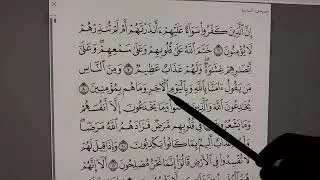 إِنَّ ٱلَّذِينَ كَفَرُوا۟ سَوَآءٌ عَلَيْهِمْ ءَأَنذَرْتَهُمْ أَمْ لَمْ تُنذِرْهُمْ
لَا يُؤْمِنُونَ ٦ خَتَمَ ٱللَّهُ عَلَىٰ قُلُوبِهِمْ وَعَلَىٰ سَمْعِهِمْ ۖ وَعَلَىٰٓ
أَبْصَٰرِهِمْ غِشَٰوَةٌ ۖ وَلَهُمْ عَذَابٌ عَظِيمٌ ٧ وَمِنَ ٱلنَّاسِ
مَن يَقُولُ ءَامَنَّا بِٱللَّهِ وَبِٱلْيَوْمِ ٱلْءَاخِرِ وَمَا هُم بِمُؤْمِنِينَ ٨
يُخَٰدِعُونَ ٱللَّهَ وَٱلَّذِينَ وَمَا يَخْدَعُونَ إِلَّآ أَنفُسَهُمْ
وَمَا يَشْعُرُونَ فِى قُلُوبِهِم مَّرَضٌ فَزَادَهُمُ ٱللَّهُ مَرَضًا ۖ
عَذَابٌ أَلِيمٌۢ بِمَا كَانُوا۟ يَكْذِبُونَ ١٠ وَإِذَا قِيلَ لَهُمْ
لَا تُفْسِدُوا۟ فِى ٱلْأَرْضِ قَالُوٓا۟ إِنَّمَا نَحْنُ مُصْلِحُونَ ١١ أَلَآ إِنَّهُمْ